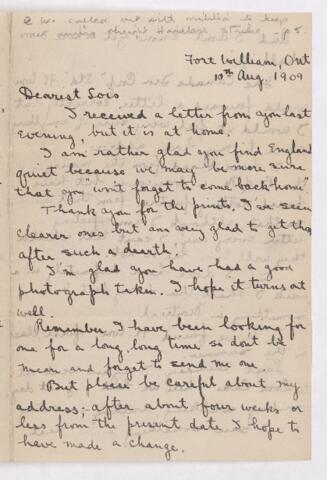 C.W. called out with militia to keep
order during Freight Handlers Strike - p5.
Fort William, Ont
10th Aug. 1909
Dearest Lois
I received a letter from you last
evening, but it is at home.
I am rather glad you find England
quiet because we may be more sure
that you "won't forget to come back home"
Thank you for the prints. I've seen
clearer ones but am very glad to get them
after such a dearth.
I'm glad you have had a good
photograph taken. I hope it turns out
well.
Remember I have been looking for
one for a long, long time so don't be
mean and forget to send me one.
But please be careful about my
address; after about four weeks or
less from the present date I hope to
have made a change.